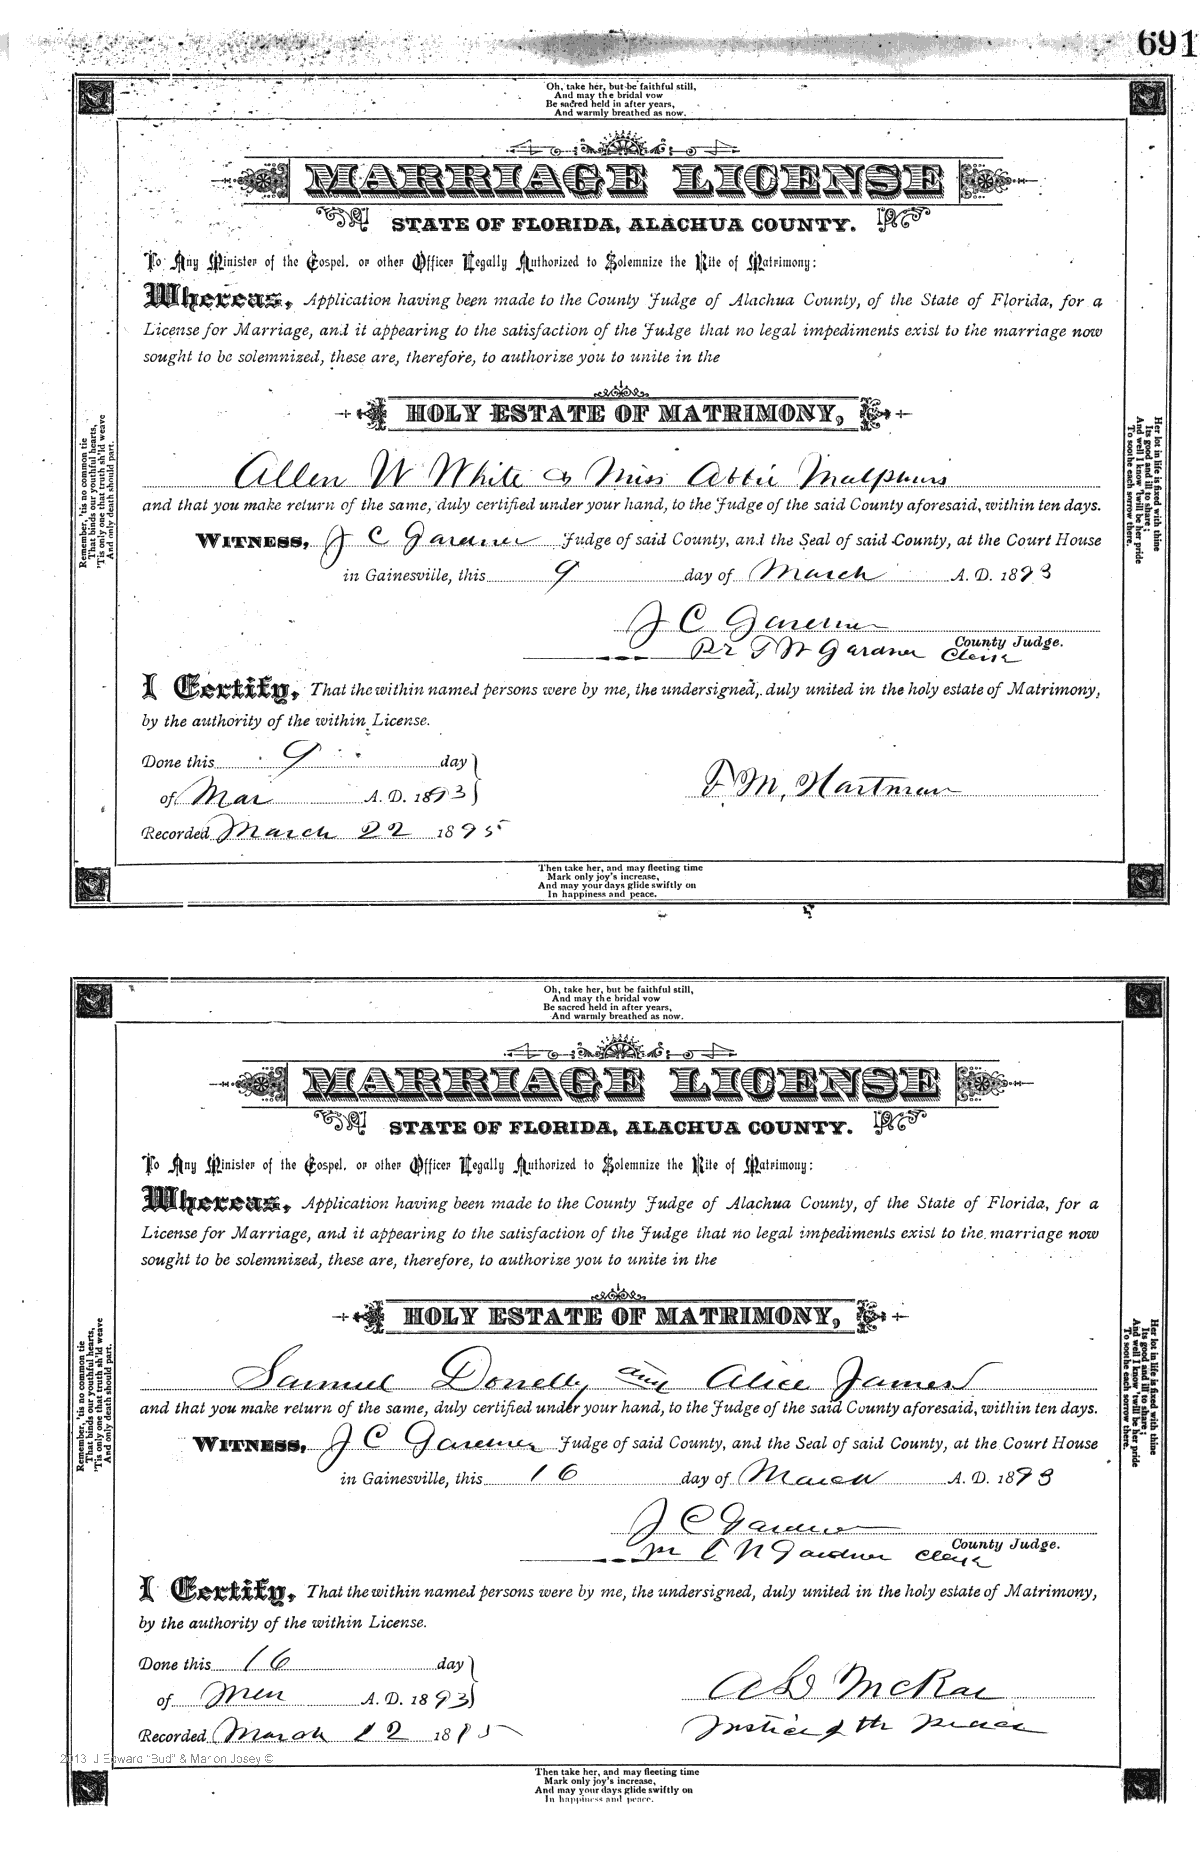 691
Oh, take her, but be faithful still,
And may the bridal vow
Be sacred held in after years,
And warmly breathed as now.
MARRIAGE LICENSE
STATE OF FLORIDA, ALACHUA COUNTY.
To Any Minister of the Gospel, or other Officer Legally Authorized to Solemnize the Rite of Matrimony:
Whereas, Application having been made to the County Judge of Alachua County, of the State of Florida, for a
License for Marriage, and it appearing to the satisfaction of the Judge that no legal impediments exist to the marriage now
sought to be solemnized, these are, therefore, to authorize you to unite in the
HOLY ESTATE OF MATRIMONY,
Allen W White & Miss Abbie Malphurs
and that you make return of the same, duly certified under your hand, to the Judge of the said County aforesaid, within ten days.
WITNESS, J C Gardner Judge of said County, and the Seal of said County, at the Court House
in Gainesville, this 9 day of March A. D. 1893
J C Gardner
County Judge.
Pr T W Gardner Clerk
I Certify, That the within named persons were by me, the undersigned, duly united in the holy estate of Matrimony,
by the authority of the within License.
Done this 9 day
of Mar A. D. 1893
T. M. Hartman
Recorded March 22 1895
Remember, 'tis no common tie
That binds our youthful hearts,
'Tis only one that truth sh'ld weave
And only death should part.
Her lot in life is fixed with thine
Its good and ill to share;
And well I know 'twill be her pride
To soothe each sorrow there.
Then take her, and may fleeting time
Mark only joy's increase,
And may your days glide swiftly on
In happiness and peace.
Oh, take her, but be faithful still,
And may the bridal vow
Be sacred held in after years,
And warmly breathed as now.
MARRIAGE LICENSE
STATE OF FLORIDA, ALACHUA COUNTY.
To Any Minister of the Gospel, or other Officer Legally Authorized to Solemnize the Rite of Matrimony:
Whereas, Application having been made to the County Judge of Alachua County, of the State of Florida, for a
License for Marriage, and it appearing to the satisfaction of the Judge that no legal impediments exist to the marriage now
sought to be solemnized, these are, therefore, to authorize you to unite in the
HOLY ESTATE OF MATRIMONY,
Samuel Donelly and Alice James
and that you make return of the same, duly certified under your hand, to the Judge of the said County aforesaid, within ten days.
WITNESS, J C Gardner Judge of said County, and the Seal of said County, at the Court House
in Gainesville, this 16 day of March A. D. 1893
J C Gardner
County Judge.
pr Gardner Clerk
I Certify, That the within named persons were by me, the undersigned, duly united in the holy estate of Matrimony,
by the authority of the within License.
Done this 16 day
of A. D. 1893
McRae
Justice of the Peace
Recorded March 1895
Remember, 'tis no common tie
That binds our youthful hearts,
'Tis only one that truth sh'ld weave
And only death should part.
Her lot in life is fixed with thine
Its good and ill to share;
And well I know 'twill be her pride
To soothe each sorrow there.
2013 J Edward "Bud" & Marion Josey ©
Then take her, and may fleeting time
Mark only joy's increase,
And may your days glide swiftly on
In happiness and peace.